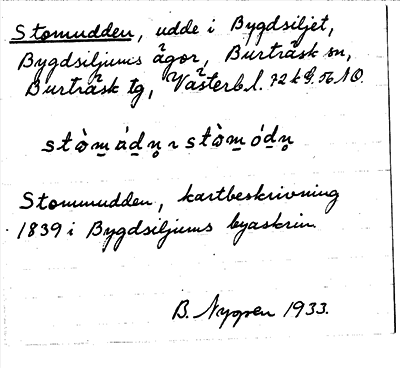 Stomudden, udde i Bygdsiljet,
Bygdsiljums ägor, Burträsk sn,
Burträsk tg, Västerb. l. 72 k G. 56 N O.
stò̀m̱ádṇ ~ stò̀m̱ódṇ
Stommudden, kartbeskrivning
1839 i Bygdsiljums byaskrin.
B. Nygren 1933.